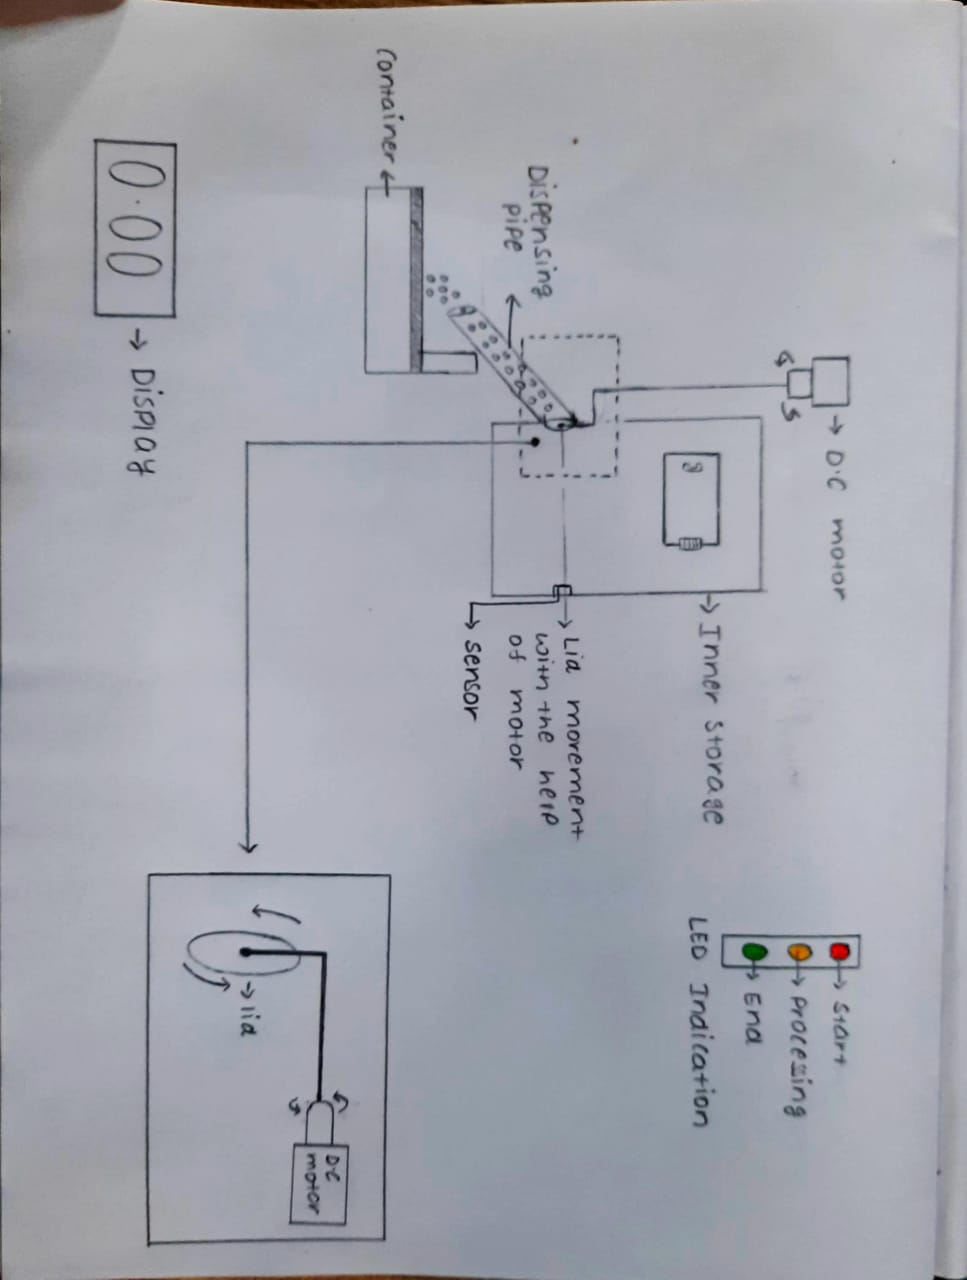 D.C motor
Start
Procesing
End
LED Indication
Inner storage
Lid movement
with the help
of motor
sensor
Dispensing
pipe
Container
D.C
motor
lid
0.00
Display